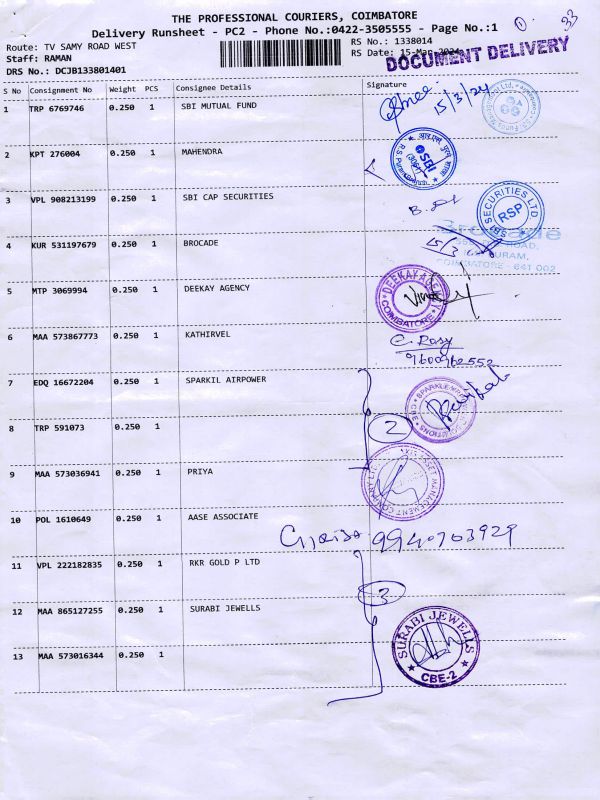 THE PROFESSIONAL COURIERS, COIMBATORE
Delivery Runsheet - PC2 - Phone No.:0422-3505555 - Page No.:1
1
33
Route: TV SAMY ROAD WEST
RS No.: 1338014
Staff: RAMAN
RS Date: 15-Mar-2024
DOCUMENT DELIVERY
DRS No.: DCJB133801401
S No Consignment No Weight PCS Consignee Details Signature
1 TRP 6769746 0.250 1 SBI MUTUAL FUND
15/3/24
2 KPT 276004 0.250 1 MAHENDRA
SBI
3 VPL 908213199 0.250 1 SBI CAP SECURITIES
SBI SECURITIES LTD
RSP
4 KUR 531197679 0.250 1 BROCADE
Brocade
ROAD,
PURAM,
COIMBATORE - 641 002
15/3
5 MTP 3069994 0.250 1 DEEKAY AGENCY
DEEKAY AGENCY
COIMBATORE
6 MAA 573867773 0.250 1 KATHIRVEL
C. Rosy
9600962552
7 EDQ 16672204 0.250 1 SPARKIL AIRPOWER
8 TRP 591073 0.250 1
2
9 MAA 573036941 0.250 1 PRIYA
ASSET MANAGEMENT COMPANY LTD
10 POL 1610649 0.250 1 AASE ASSOCIATE
9940703929
11 VPL 222182835 0.250 1 RKR GOLD P LTD
3
12 MAA 865127255 0.250 1 SURABI JEWELLS
SURABI JEWELLS
CBE-2
13 MAA 573016344 0.250 1